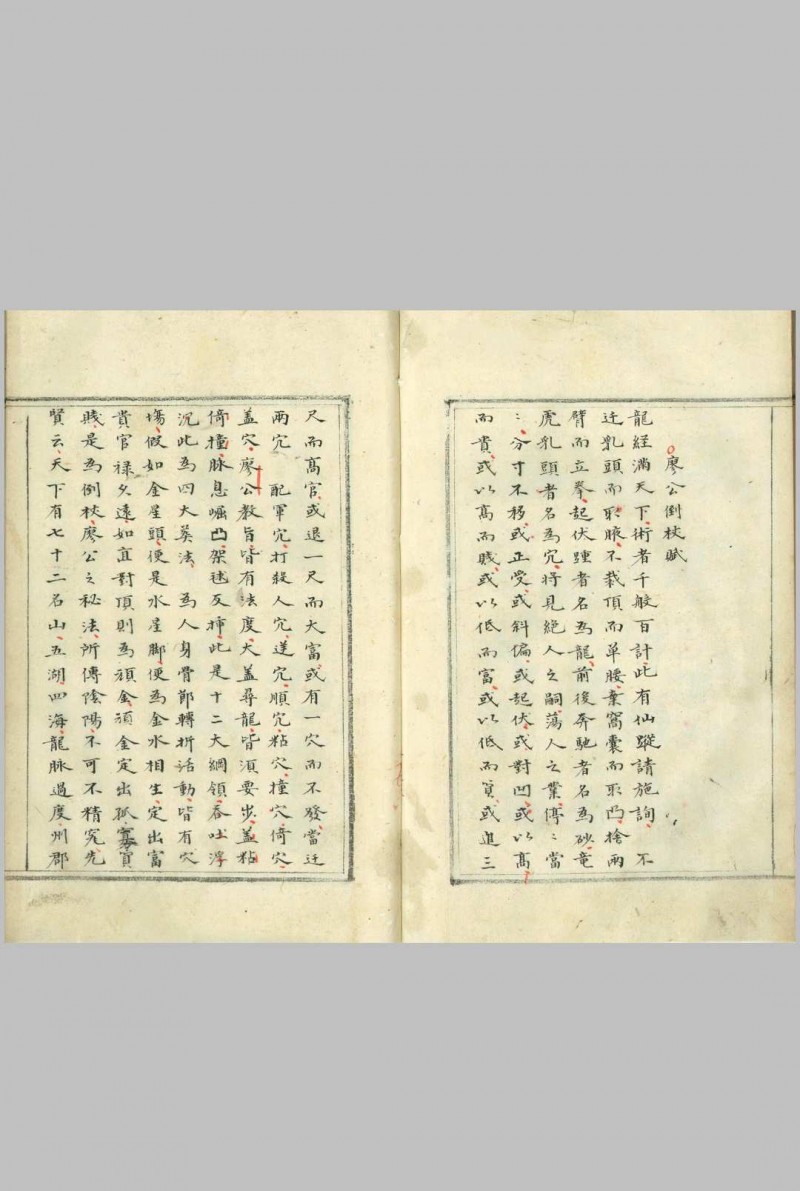 廖公倒杖賦
龍経滿天下術者千般百計此有仙蹤請施詢不
迁乳頭而取腋不栽頂而单腰棄窩囊而取凸捨兩
臂而立拳起伏踵者名為龍前後奔馳者名為砂竜
虎乳頭者名為穴将見絕人之嗣蕩人之業停〻當
〻分寸不移或正受或斜偏或起伏或對凹或以髙
而貴或以髙而賎或以低而富或以低而貧或進三
尺而髙官或退一尺而大富或有一穴而不發當迁
兩穴配軍穴打殺人穴送穴順穴粘穴撞穴倚穴
盖穴廖公教旨皆有法度大盖尋龍皆湏要步盖粘
倚撞脉息崛凸架毬反掃此是十二大綱領吞吐浮
沉此為四大𦵏法為人身骨節轉折活動皆有穴
塲假如金星頭便是水星脚便為金水相生定出富
貴官禄久遠如直對頂則為頑金頑金定出孤寡貧
賎是為倒杖廖公之秘法所傳陰陽不可不精究先
賢云天下有七十二名山五湖四海龍脉過度州郡